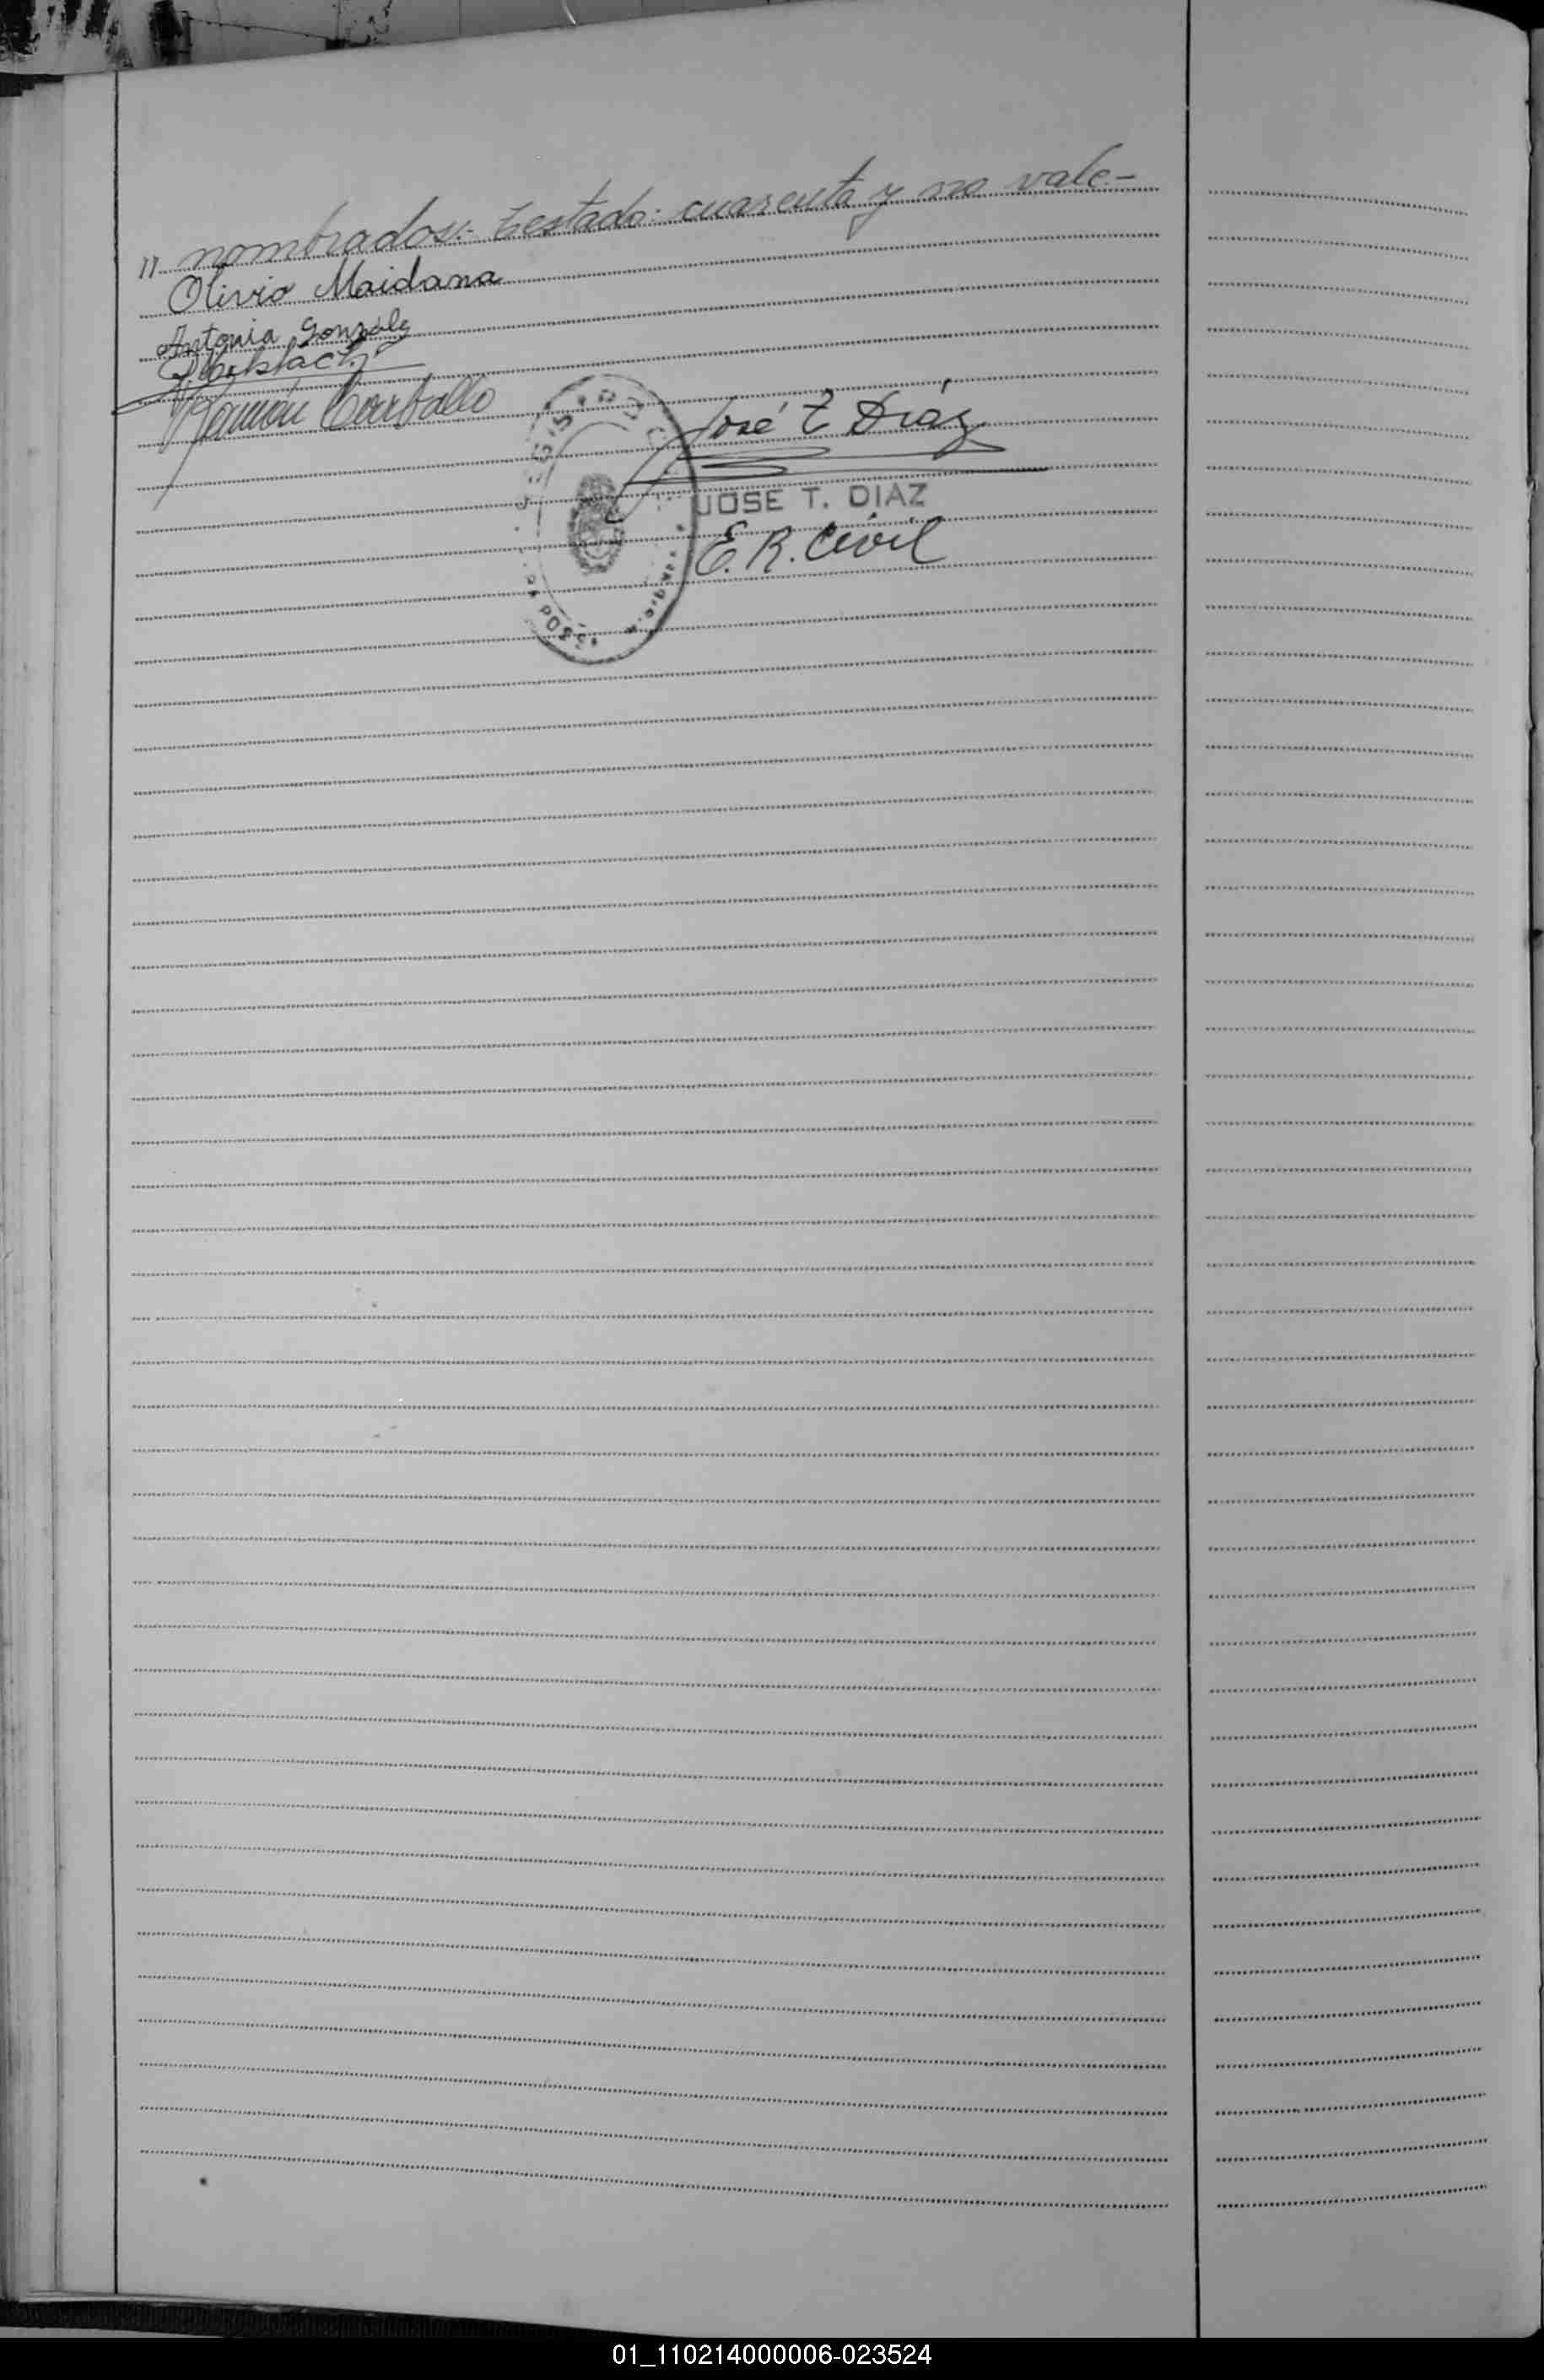 " nombrados:- Testado: cuarenta y no vale-
Olivio Maidana
Antonia Gonzalez
Ramón Carballo
José T Díaz
JOSE T. DIAZ
E. R. Civil
01_110214000006-023524